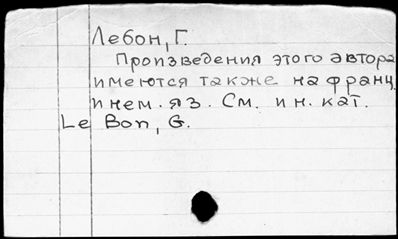 Лебон, Г.
Произведения этого автора
имеются также на франц.
и нем. яз. См. ин. кат.
Le Bon, G.